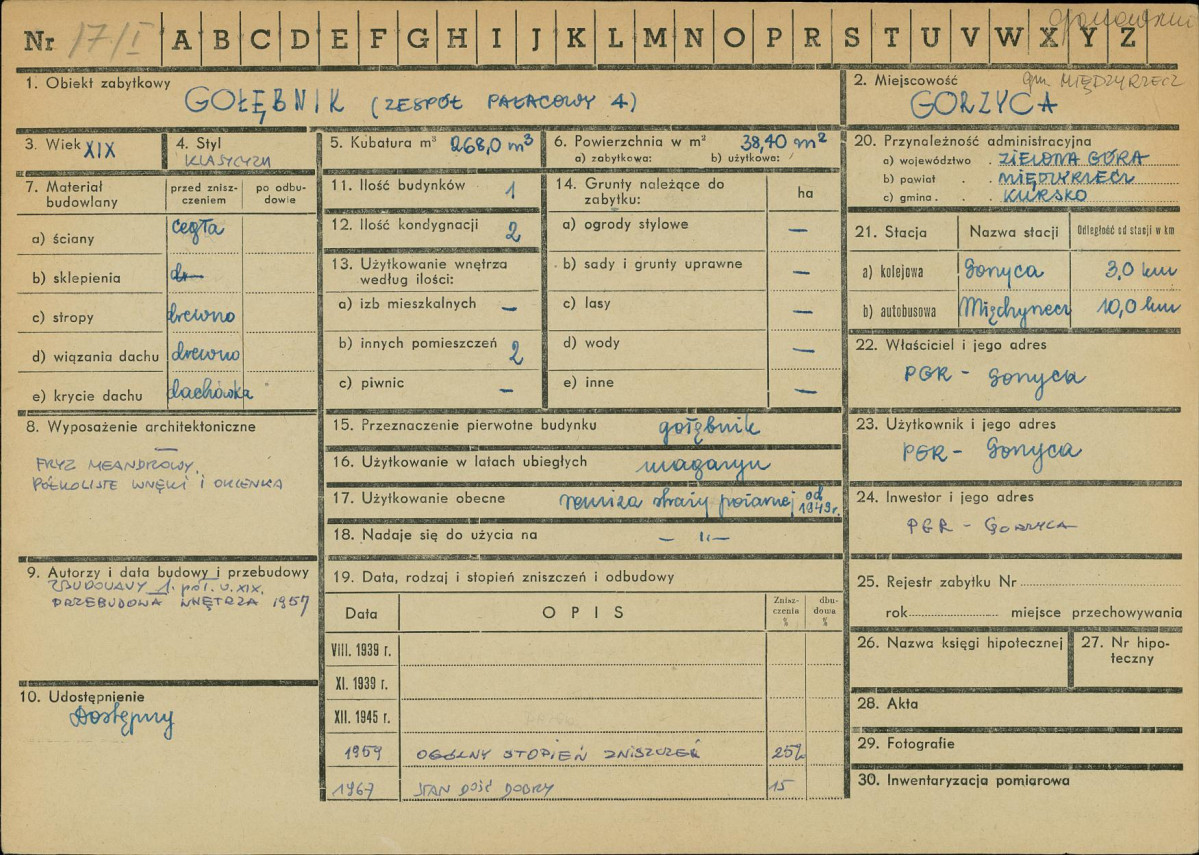 Nr 17/I A B C D E F G H I J K L M N O P R S T U V W X Y Z
1. Obiekt zabytkowy
GOŁĘBNIK (ZESPÓŁ PAŁACOWY 4)
2. Miejscowość gm. MIĘDZYRZECZ
GORZYCA
3. Wiek XIX
4. Styl
KLASYCYZM
5. Kubatura m³ 268,0 m³
6. Powierzchnia w m² 38,40 m²
a) zabytkowa: b) użytkowa:
7. Materiał budowlany
przed zniszczeniem
po odbudowie
a) ściany cegła
b) sklepienia
c) stropy drewno
d) wiązania dachu drewno
e) krycie dachu dachówka
8. Wyposażenie architektoniczne
FRYZ MEANDROWY,
PÓŁKOLISTE WNĘKI I OKIENKA
9. Autorzy i data budowy i przebudowy
ZBUDOWANY 1. poł. w. XIX.
PRZEBUDOWA WNĘTRZA 1957
10. Udostępnienie
Dostępny
11. Ilość budynków 1
12. Ilość kondygnacji 2
13. Użytkowanie wnętrza
według ilości:
a) izb mieszkalnych —
b) innych pomieszczeń 2
c) piwnic —
14. Grunty należące do
zabytku:
ha
a) ogrody stylowe —
b) sady i grunty uprawne —
c) lasy —
d) wody —
e) inne —
15. Przeznaczenie pierwotne budynku gołębnik
16. Użytkowanie w latach ubiegłych magazyn
17. Użytkowanie obecne remiza straży pożarnej od 1949 r.
18. Nadaje się do użycia na — " —
19. Data, rodzaj i stopień zniszczeń i odbudowy
Data OPIS Zniszczenia % dbudowa %
VIII. 1939 r.
XI. 1939 r.
XII. 1945 r.
1959 OGÓLNY STOPIEŃ ZNISZCZEŃ 25%
1967 STAN DOŚĆ DOBRY 15
20. Przynależność administracyjna
a) województwo ZIELONA GÓRA
b) powiat MIĘDZYRZECZ
c) gmina KURSKO
21. Stacja Nazwa stacji Odległość od stacji w km
a) kolejowa Gorzyca 3,0 km
b) autobusowa Międzyrzecz 10,0 km
22. Właściciel i jego adres
PGR - Gorzyca
23. Użytkownik i jego adres
PGR - Gorzyca
24. Inwestor i jego adres
PGR - GORZYCA
25. Rejestr zabytku Nr
rok miejsce przechowywania
26. Nazwa księgi hipotecznej
27. Nr hipoteczny
28. Akta
29. Fotografie
30. Inwentaryzacja pomiarowa